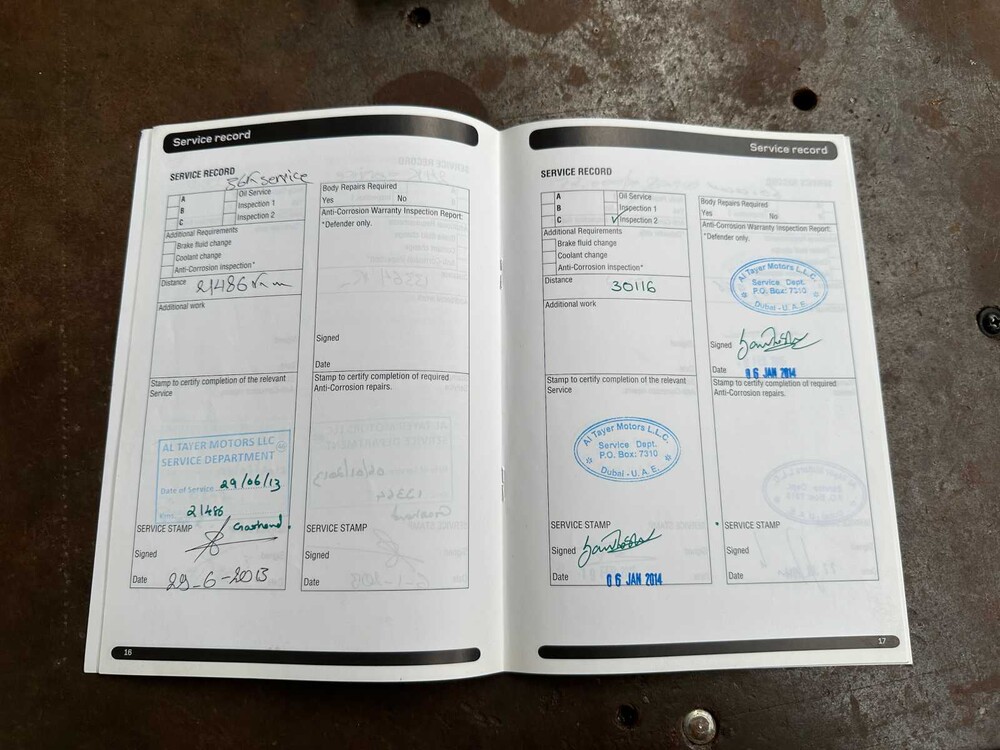 Service record
SERVICE RECORD
36K service
A
B
C
Oil Service
Inspection 1
Inspection 2
Additional Requirements
Brake fluid change
Coolant change
Anti-Corrosion Inspection*
Distance 21486 km
Additional work
Stamp to certify completion of the relevant
Service
AL TAYER MOTORS LLC
SERVICE DEPARTMENT
Date of Service 29/06/13
Kms 21486
SERVICE STAMP
Signed
Date 29-6-2013
Body Repairs Required
Yes No
Anti-Corrosion Warranty Inspection Report:
*Defender only.
Signed
Date
Stamp to certify completion of required
Anti-Corrosion repairs.
SERVICE STAMP
Signed
Date
16
Service record
SERVICE RECORD
A
B
C
Oil Service
Inspection 1
✓ Inspection 2
Additional Requirements
Brake fluid change
Coolant change
Anti-Corrosion Inspection*
Distance 30116
Additional work
Stamp to certify completion of the relevant
Service
Al Tayer Motors L.L.C.
Service Dept.
P.O. Box: 7310
Dubai - U.A.E.
SERVICE STAMP
Signed
Date 06 JAN 2014
Body Repairs Required
Yes No
Anti-Corrosion Warranty Inspection Report:
*Defender only.
Al Tayer Motors L.L.C.
Service Dept.
P.O. Box: 7310
Dubai - U.A.E.
Signed
Date 06 JAN 2014
Stamp to certify completion of required
Anti-Corrosion repairs.
SERVICE STAMP
Signed
Date
17